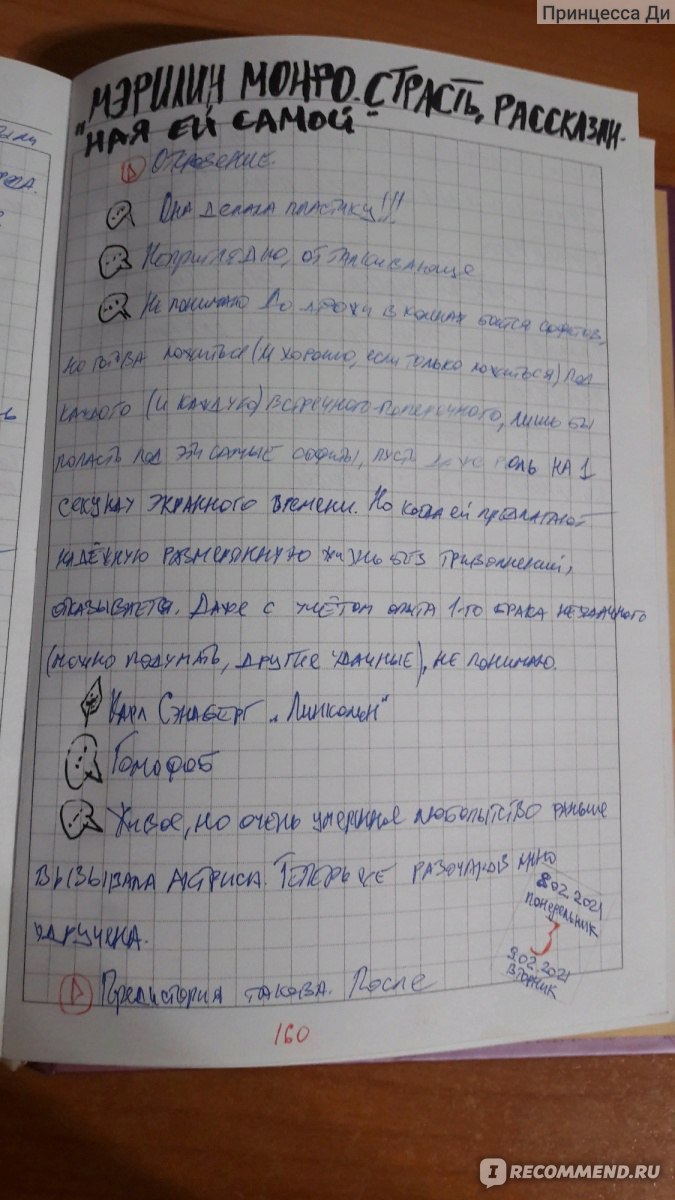 Принцесса Ди
"МЭРИЛИН МОНРО. СТРАСТЬ, РАССКАЗАН-
НАЯ ЕЙ САМОЙ"
Откровение.
Она делала пластику!!!
Неприглядно, отталкивающе
Не понимаю. До дрожи в коленах боится софитов,
но готова ложиться (и хорошо, если только ложиться) под
каждого (и каждую) встречного-поперечного, лишь бы
попасть под эти самые софиты, пусть даже роль на 1
секунду экранного времени. Но когда ей предлагают
надёжную размеренную жизнь без треволнений,
отказывается. Даже с учётом опыта 1-го брака неудачного
(можно подумать, другие удачные), не понимаю.
Карл Сэндберг „Линкольн"
Гомофоб
Живое, но очень умеренное любопытство раньше
вызывала актриса. Теперь же разочарованно
удручена.
8.02.2021
понедельник
3
9.02.2021
вторник
Предистория такова. После
160
IRECOMMEND.RU